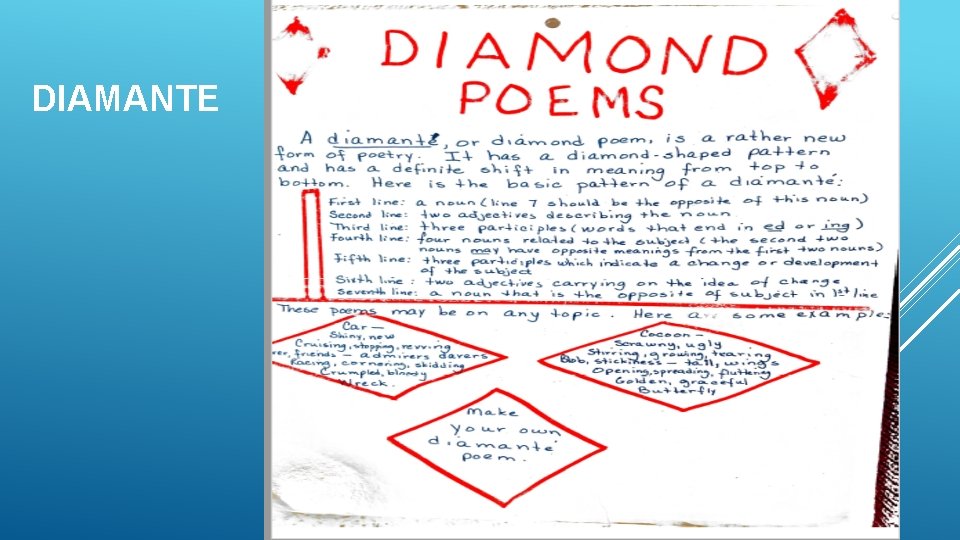 DIAMANTE
DIAMOND
POEMS
A diamanté, or diamond poem, is a rather new
form of poetry. It has a diamond-shaped pattern
and has a definite shift in meaning from top to
bottom. Here is the basic pattern of a diamanté:
First line: a noun (line 7 should be the opposite of this noun)
Second line: two adjectives describing the noun
Third line: three participles (words that end in ed or ing)
Fourth line: four nouns related to the subject (the second two
nouns may have opposite meanings from the first two nouns)
Fifth line: three participles which indicate a change or development
of the subject
Sixth line: two adjectives carrying on the idea of change
Seventh line: a noun that is the opposite of subject in 1st line
These poems may be on any topic. Here are some example
Car —
Shiny, new
Cruising, stopping, revving
friends — admirers darers
Racing, cornering, skidding
Crumpled, bloody
Wreck.
Cocoon -
Scrawny, ugly
Stirring, growing, tearing
stickiness — wings
Opening, spreading, fluttering
Golden, graceful
Butterfly
Make
your own
diamanté
poem.